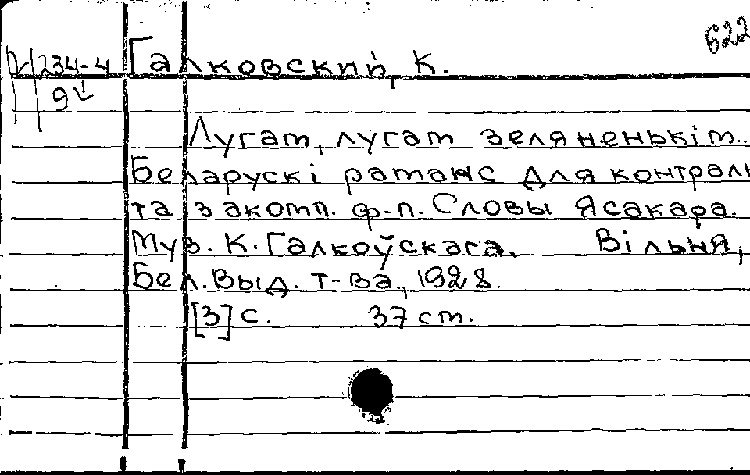 622
234-4
9
Галковский, К.
Лугам, лугам зеляненькім..
Беларускі раманс для контраль
та з акомп. ф-п. Словы Ясакара.
Муз. К. Галкоўскага. Вільня,
Бел. Выд. т-ва, 1928.
[3] с. 37 см.